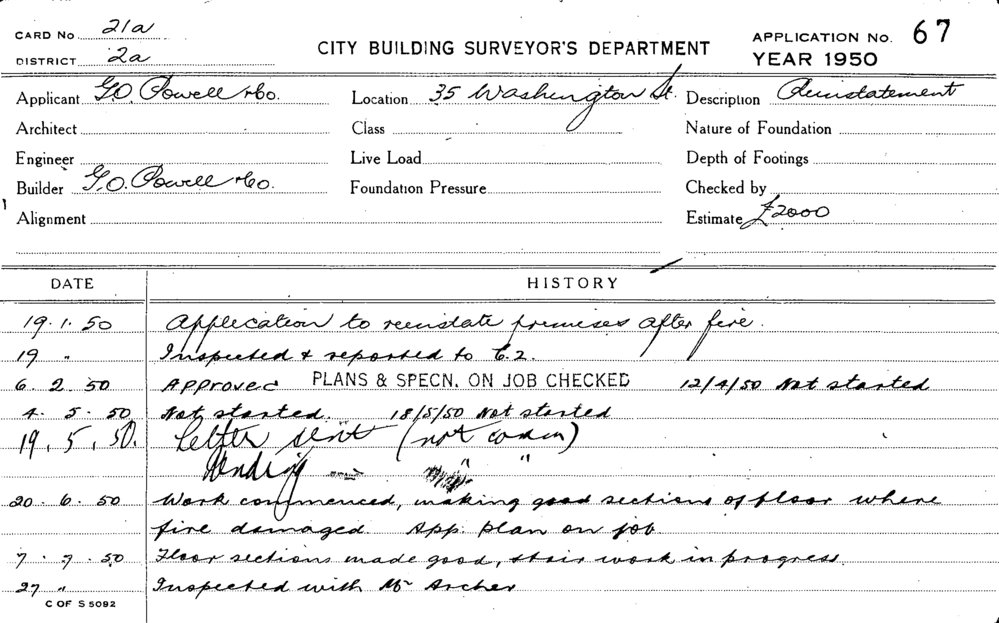 CARD No 21a
DISTRICT 2a
CITY BUILDING SURVEYOR'S DEPARTMENT
APPLICATION No. 67
YEAR 1950
Applicant G.O. Powell & Co. Location 35 Washington St. Description Reinstatement
Architect Class Nature of Foundation
Engineer Live Load Depth of Footings
Builder G.O. Powell & Co. Foundation Pressure Checked by
Alignment Estimate £2000
DATE HISTORY
19.1.50 Application to reinstate premises after fire.
19 " Inspected & reported to C.2.
6.2.50 Approved PLANS & SPECN. ON JOB CHECKED 12/4/50 Not started
4.5.50 Not started. 18/5/50 Not started
19.5.50. Letter sent (not
" "
20.6.50 Work commenced, making good sections of floor where
fire damaged. App. plan on job
7.7.50 Floor sections made good, stair work in progress.
27 " Inspected with Mr Archer
C OF S 5092